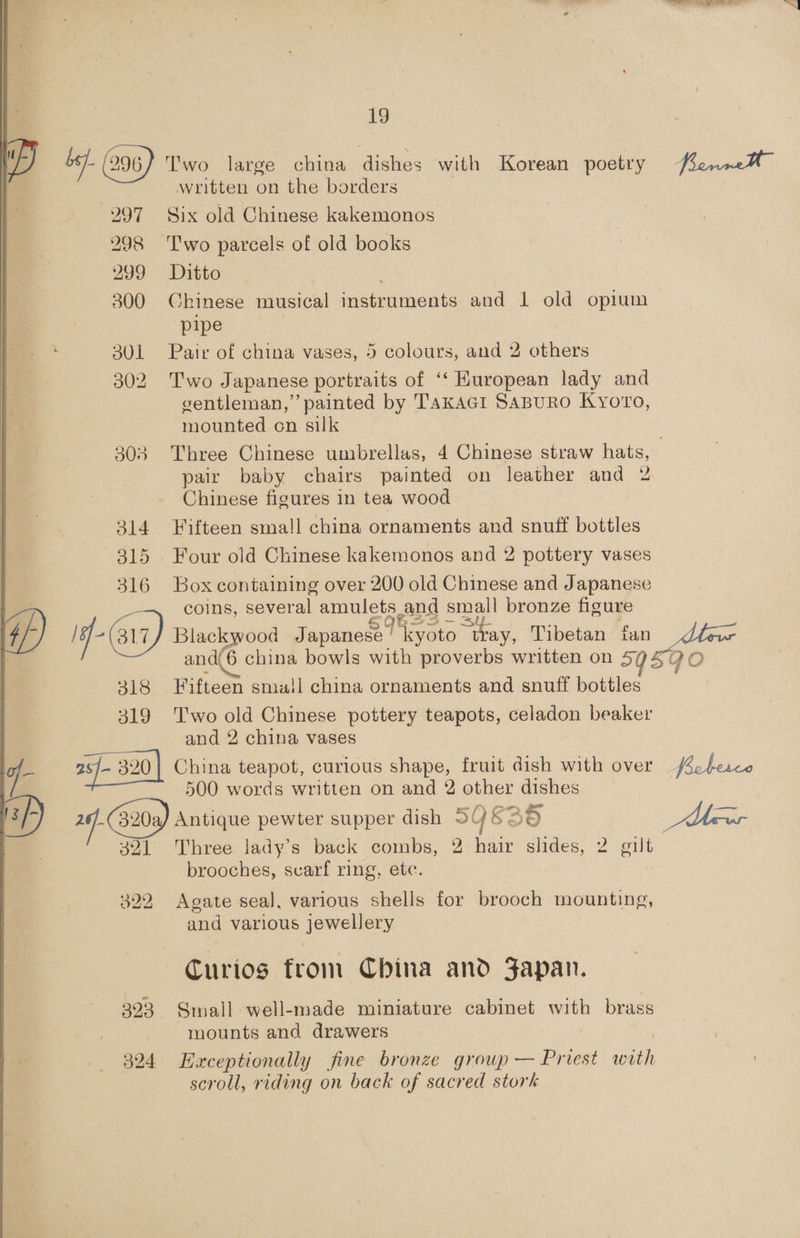 19
(296) Two large china dishes with Korean poetry Bennett
written on the borders
297 Six old Chinese kakemonos
298 Two parcels of old books
299 Ditto
300 Chinese musical instruments and 1 old opium
pipe
301 Pair of china vases, 5 colours, and 2 others
302 Two Japanese portraits of “European lady and
gentleman,” painted by TAKAGI SABURO KYOTO,
mounted on silk
303 Three Chinese umbrellas, 4 Chinese straw hats,
pair baby chairs painted on leather and 2
Chinese figures in tea wood
314 Fifteen small china ornaments and snuff bottles
315 Four old Chinese kakemonos and 2 pottery vases
316 Box containing over 200 old Chinese and Japanese
coins, several amulets and small bronze figure
59633-34
(317) Blackwood Japanese kyoto tray, Tibetan fan
and (6 china bowls with proverbs written on 59590
318 Fifteen small china ornaments and snuff bottles
319 Two old Chinese pottery teapots, celadon beaker
and 2 china vases
25/- 320 China teapot, curious shape, fruit dish with over
500 words written on and 2 other dishes
(320a) Antique pewter supper dish 59635
321 Three lady's back combs, 2 hair slides, 2 gilt
brooches, scarf ring, etc.
322 Agate seal, various shells for brooch mounting,
and various jewellery
Curios from China and Japan.
323 Small well-made miniature cabinet with brass
mounts and drawers
324 Exceptionally fine bronze group — Priest with
scroll, riding on back of sacred stork